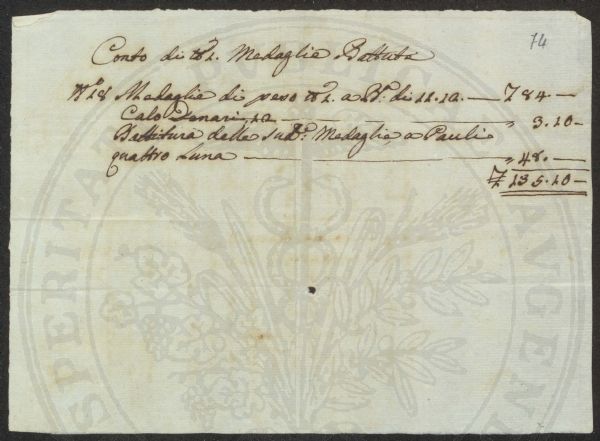 74
Conto di ℔ 1. Medaglie Battute
N.° 18 Medaglie di peso ℔ 1. a di — ₤ 84 —
Calo Denari, 10 — " 3.10 —
Battitura delle sud.e Medaglie, a Pauli
quattro Luna — " 48. —
₤ 135.10 —
SPERITAT PVBLICAE AVGEN